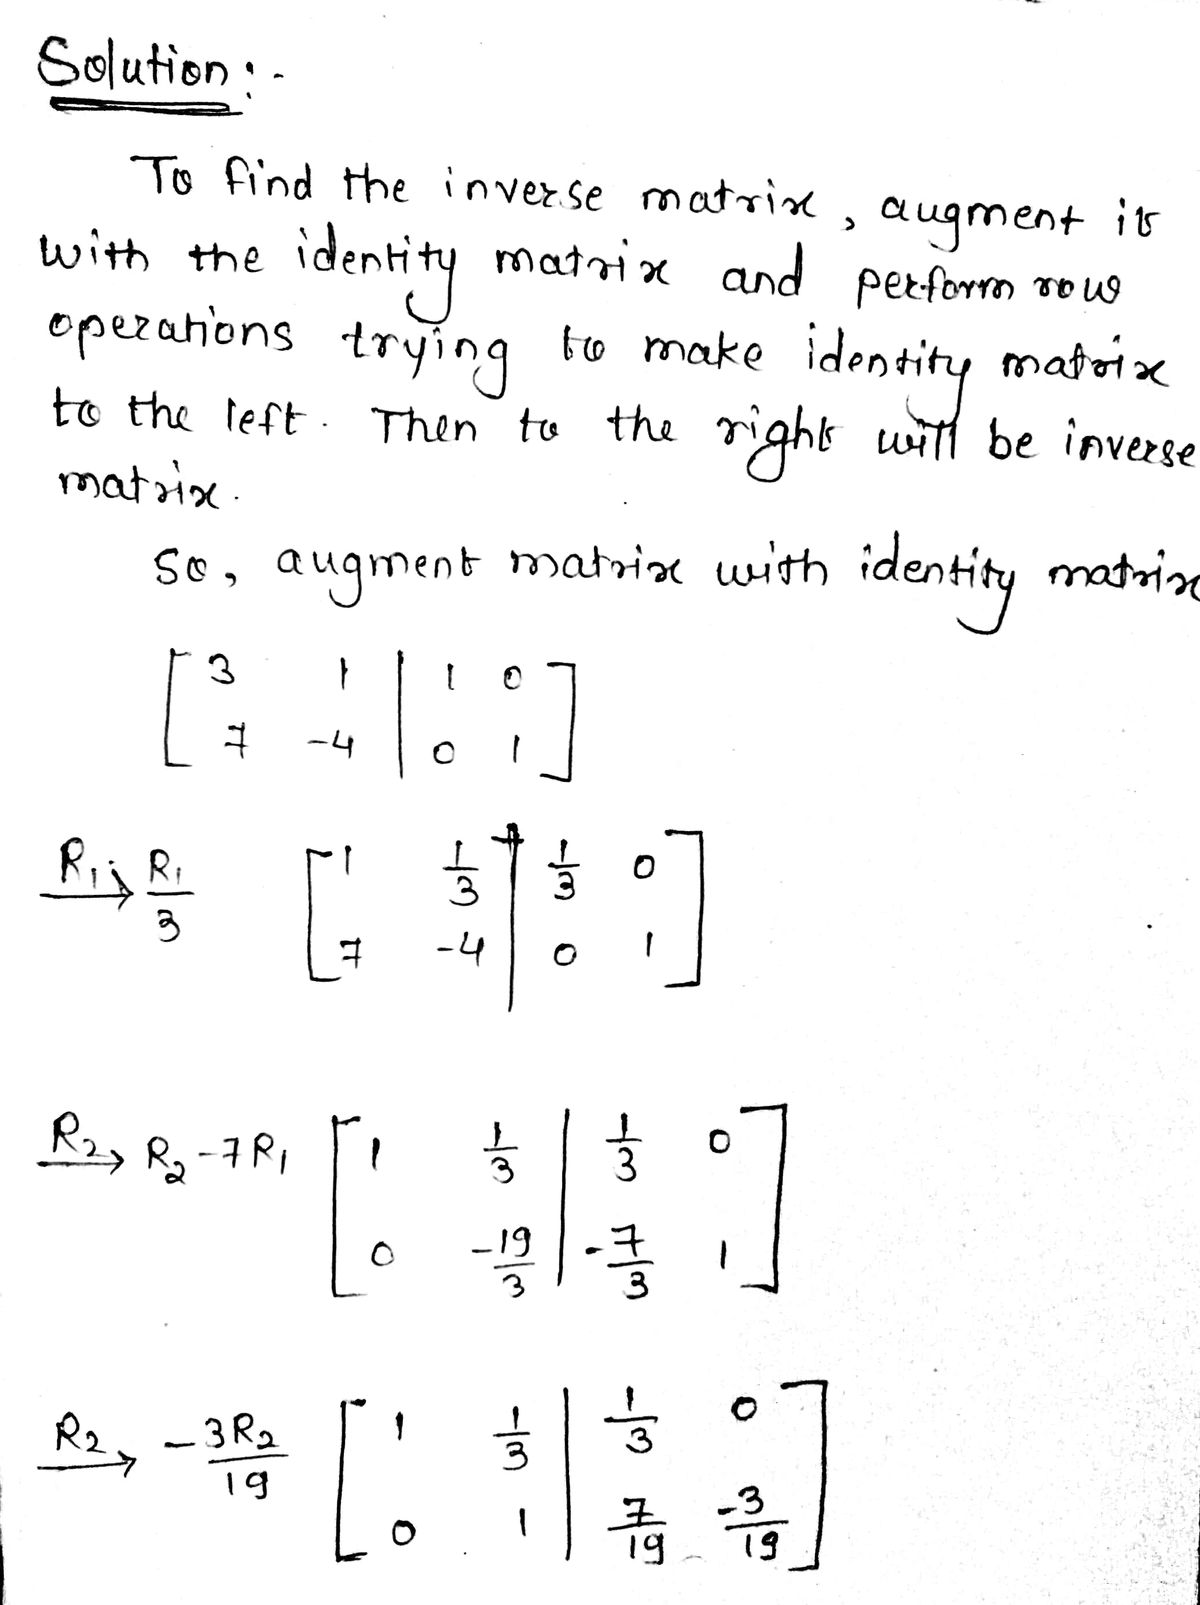 Solution :-
To find the inverse matrix, augment it
with the identity matrix and perform row
operations trying to make identity matrix
to the left. Then to the right will be inverse
matrix.
So, augment matrix with identity matrix
[ 3 1 | 1 0 ]
[ 7 -4 | 0 1 ]
R₁ → R₁/3 [ 1 1/3 | 1/3 0 ]
[ 7 -4 | 0 1 ]
R₂ → R₂ - 7R₁ [ 1 1/3 | 1/3 0 ]
[ 0 -19/3 | -7/3 1 ]
R₂ → -3R₂/19 [ 1 1/3 | 1/3 0 ]
[ 0 1 | 7/19 -3/19 ]